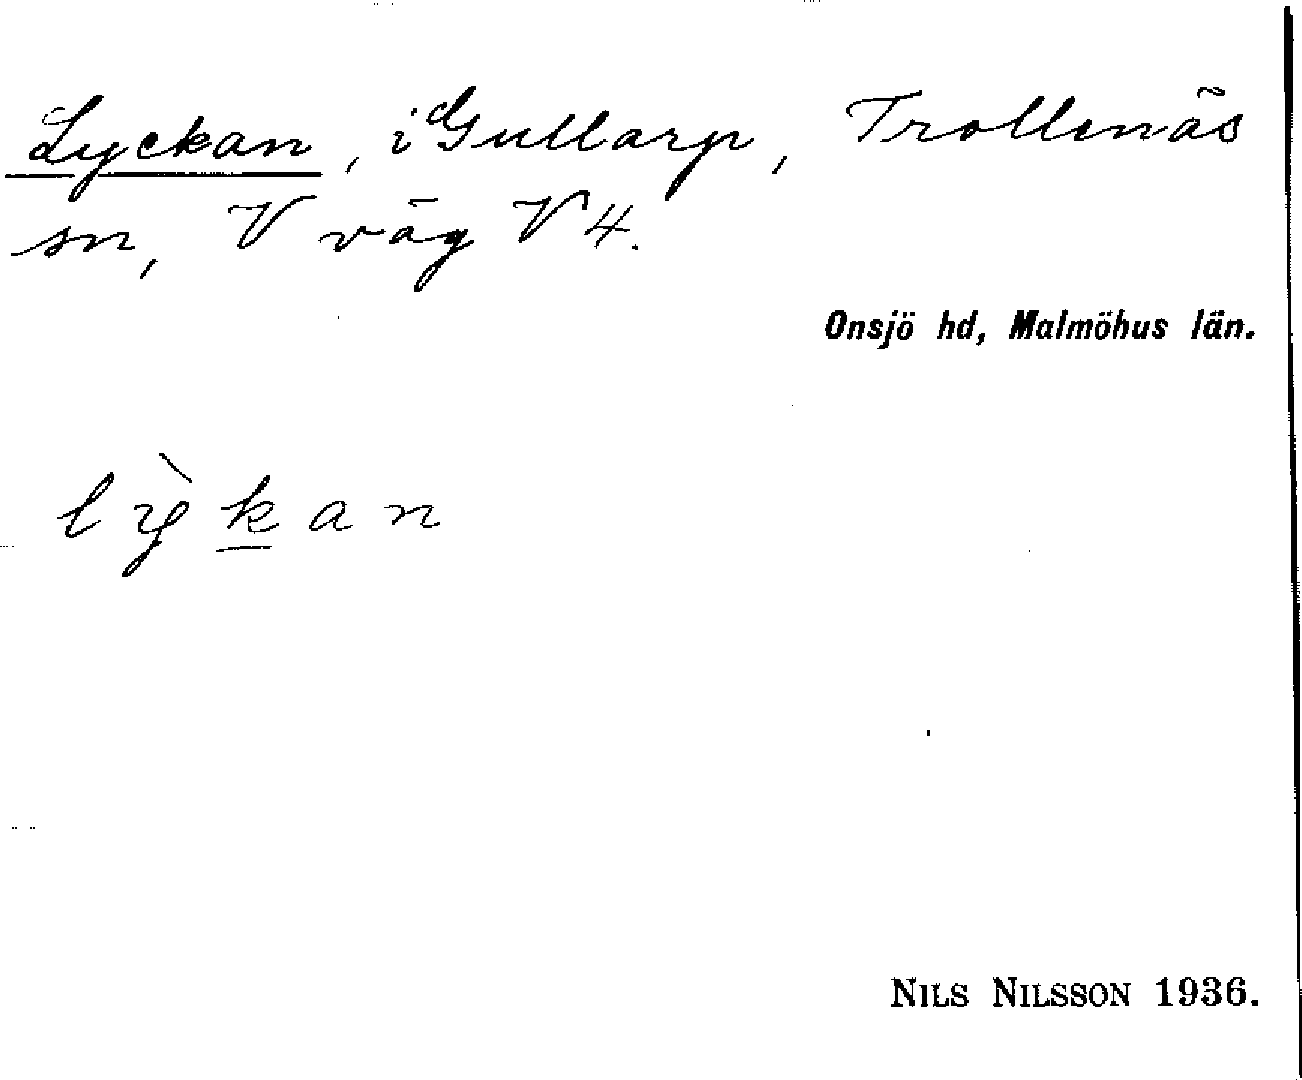 Lyckan, i Gullarp, Trollenäs
sn, V väg V 4.
Onsjö hd, Malmöhus län.
lỳk̲an
NILS NILSSON 1936.